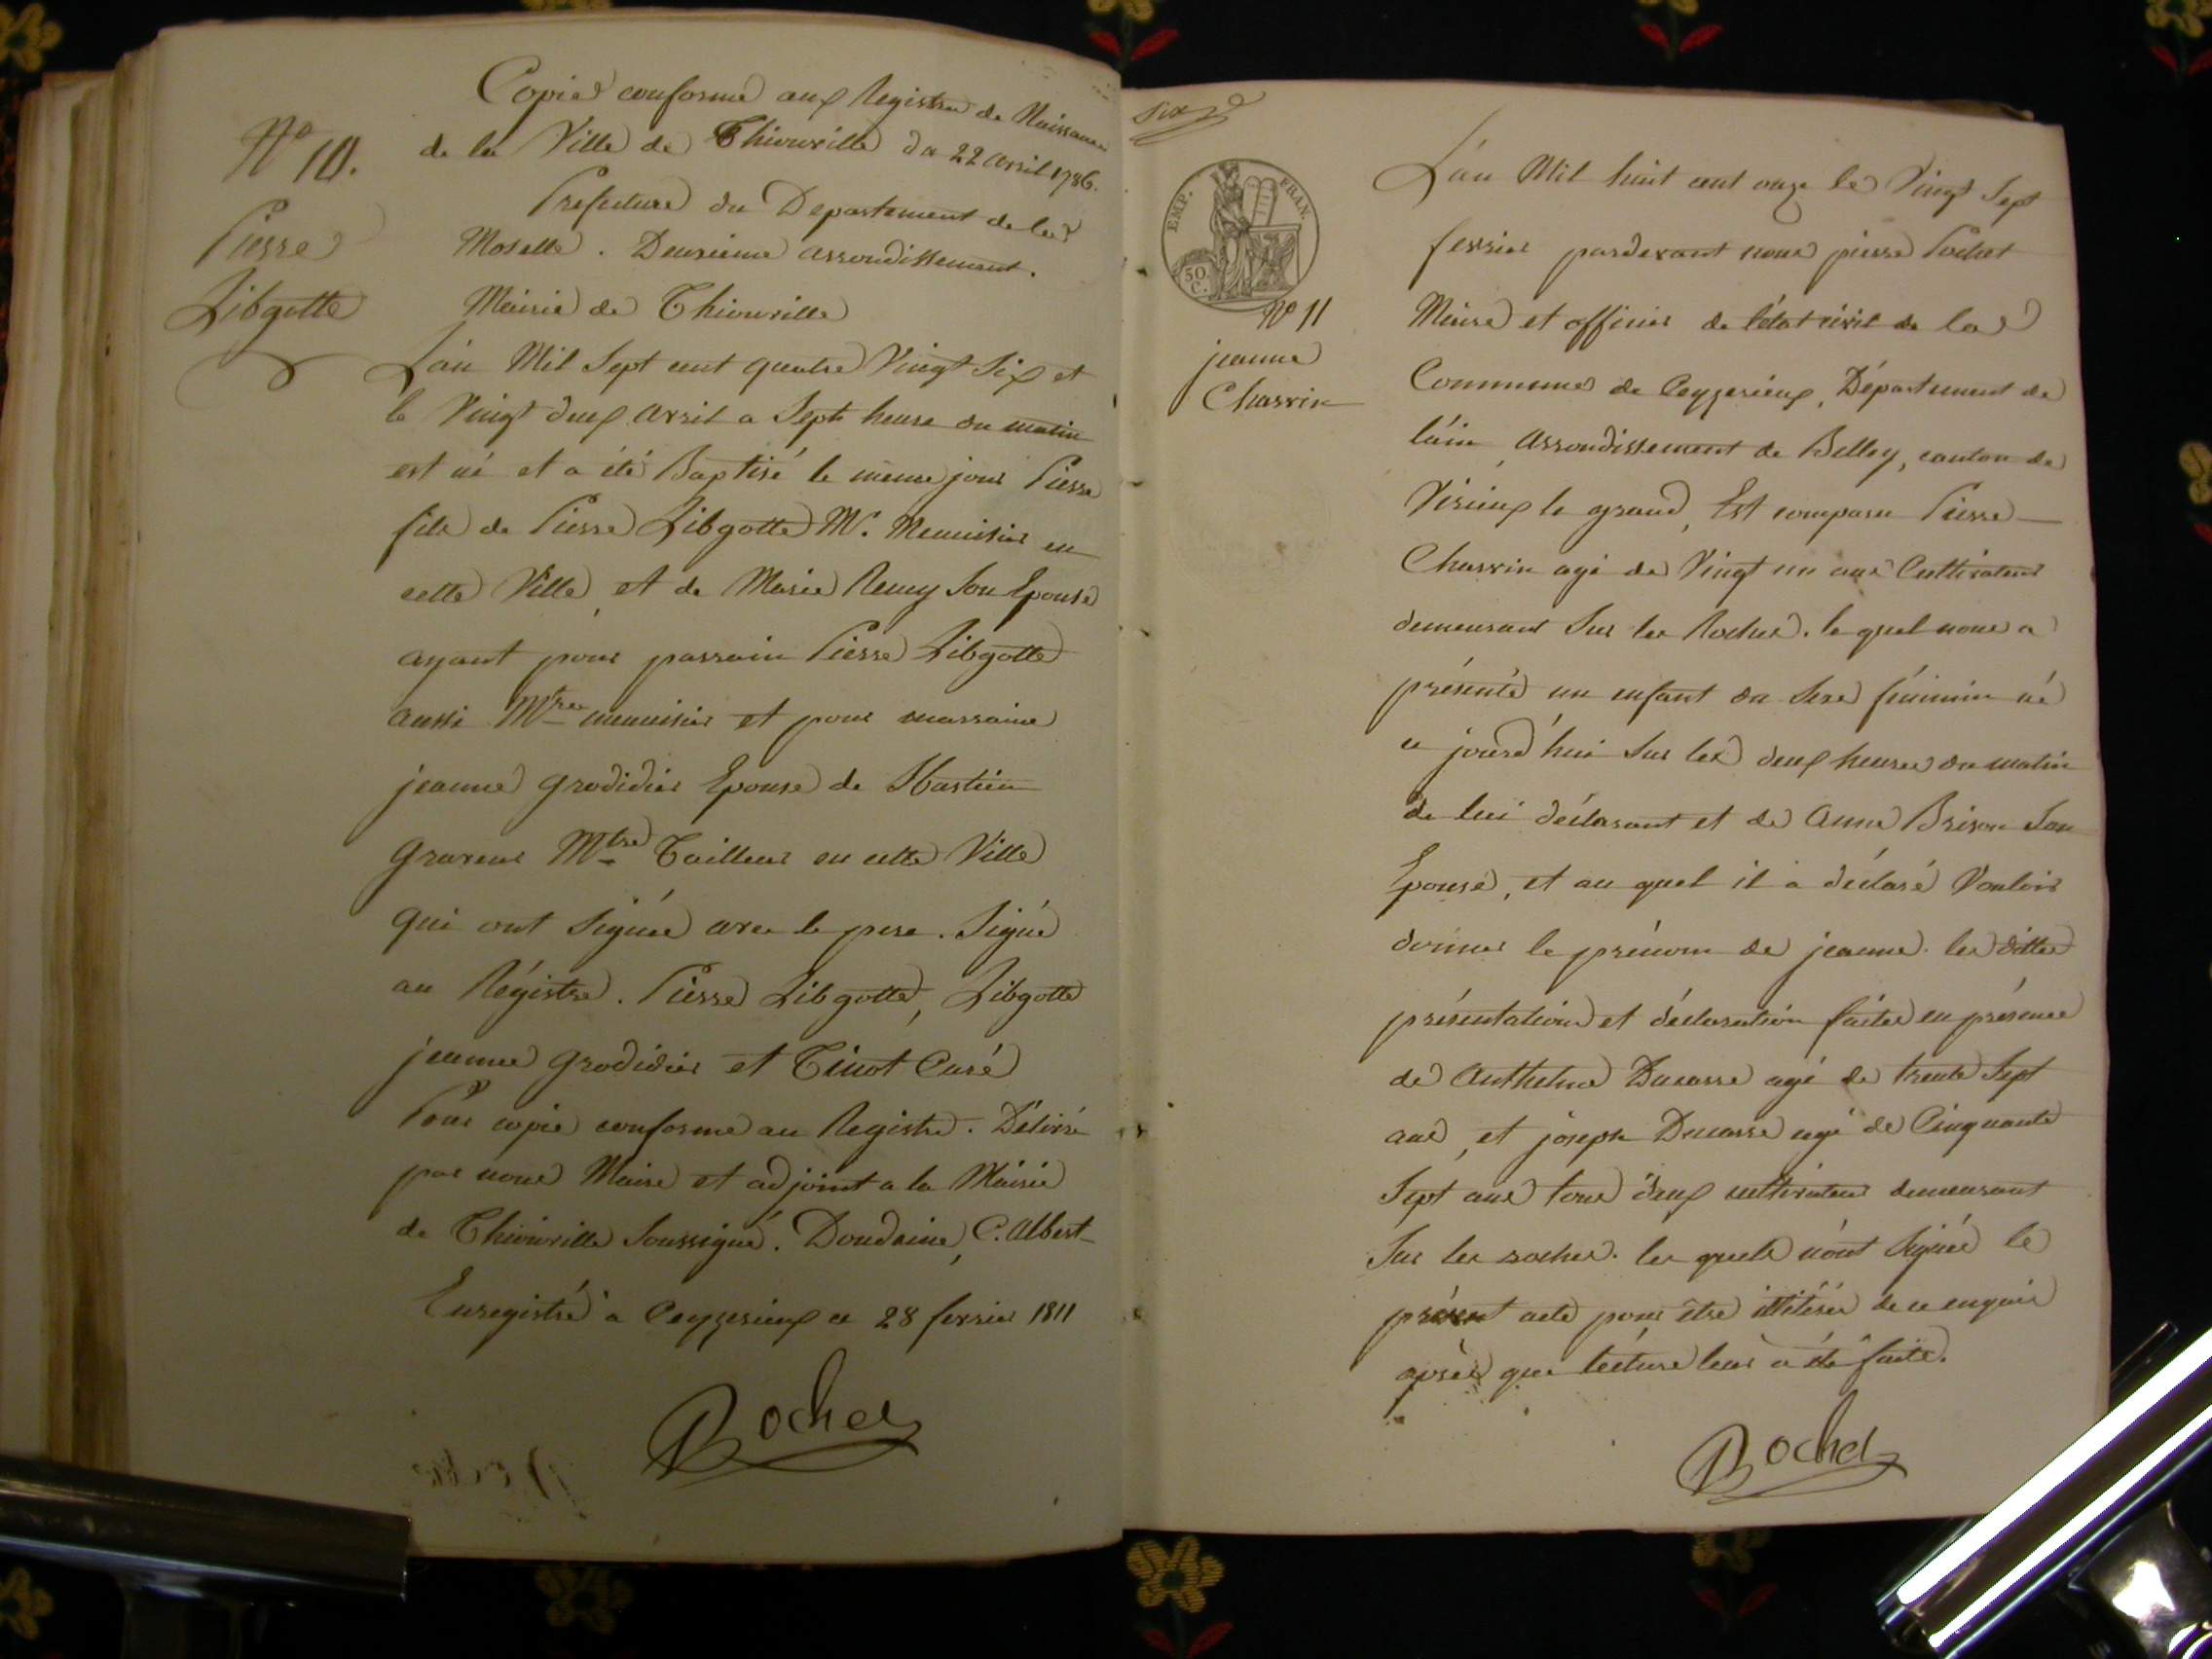 Copie conforme aux Registre de Naissance
de la Ville de Thionville du 22 avril 1786.
N° 10.
Pierre
Libgotte
Prefecture du Departement de la
Moselle. Deuxieme arrondissement.
Mairie de Thionville
L'an Mil Sept cent quatre Vingt Six et
le Vingt deux avril a Sept heure du matin
est né et a été Baptisé le meme jour Pierre
fils de Pierre Libgotte M. Menuisier en
cette Ville, et de Marie Remy Son Epouse
ayant pour parrain Pierre Libgotte
aussi Mtre menuisier et pour marraine
jeanne grodidier Epouse de Sbastien
graveur Mtre Tailleur en cette Ville
qui ont Signée avec le pere. Signé
au Régistre. Pierre Libgotte, Libgotte
jeanne grodidier et Tinot Curé
Pour copie conforme au Registre. Délivré
par nous Maire et adjoint a la Mairie
de Thionville Soussigné. Doudaine, C. Albert
Enregistré a Ceyzerieux ce 28 fevrier 1811
Rochet
Six
EMP. FRAN.
50.
C.
N° 11
jeanne
Charvin
L'an Mil huit cent onze le Vingt Sept
fevrier pardevant nous pierre Rochet
Maire et officier de l'état civil de la
Commune de Ceyzerieux, Département de
l'ain, arrondissement de Belley, canton de
Virieux le grand, Est comparu Pierre
Charvin agé de Vingt un ans Cultivateur
demeurant Sur les Roches. le quel nous a
présenté un enfant du Sexe féminin né
ce jourd'hui Sur les deux heures du matin
de lui déclarant et de anne Brison Son
Epouse, et au quel il a déclaré Vouloir
donner le prénom de jeanne. les dittes
présentation et déclaration faites en présence
de anthelme Ducarre agé de trente Sept
ans, et joseph Ducarre agé de Cinquante
Sept ans tous deux cultivateur demeurant
Sur les roches. les quels n'ont Signée le
présent acte pour être illitérés de ce enquis
après que lecture leur a été faite.
Rochet